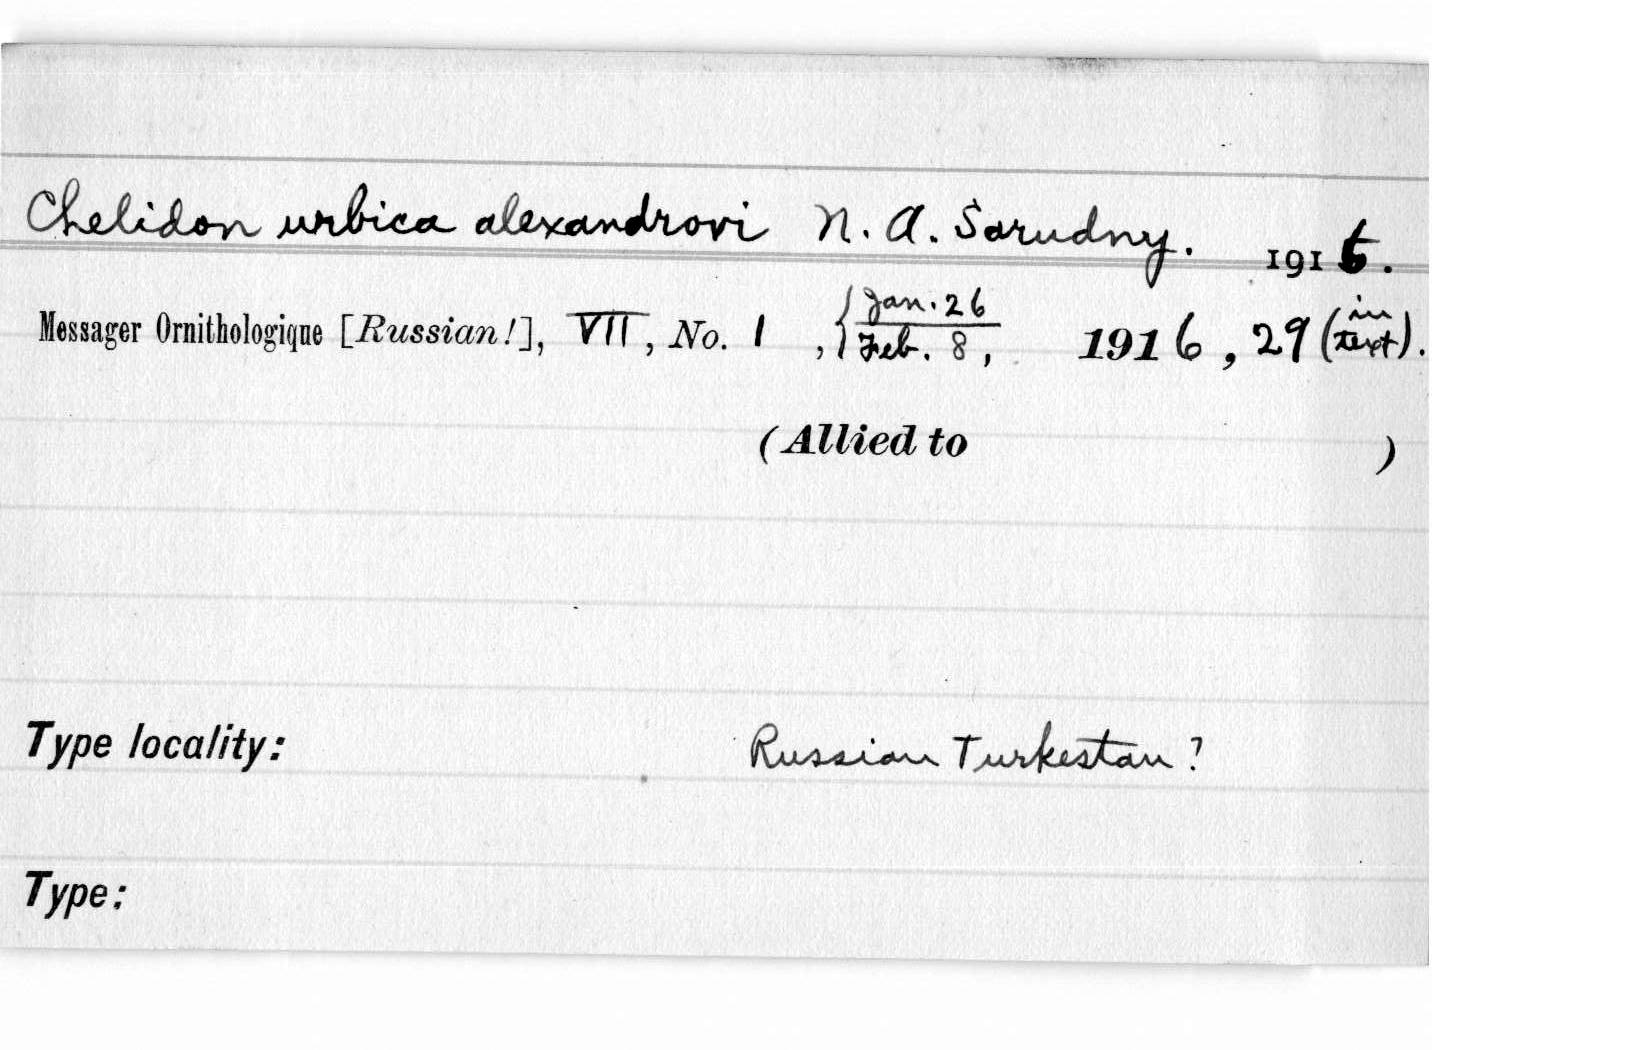 Chelidon urbica alexandrovi N. A. Sarudny. 1916.
Messager Ornithologique [Russian!], VII, No. 1, { Jan. 26 / Feb. 8, 1916, 29 (in text).
(Allied to )
Type locality: Russian Turkestan?
Type: